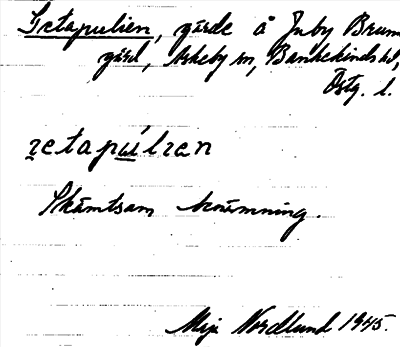 Getapulien, gärde å Juby Brunn
gård, Askeby sn, Bankekinds hd,
Östg. l.
ʒetapu̲lʒen
Skämtsam benämning.
Maja Nordlund 1945.